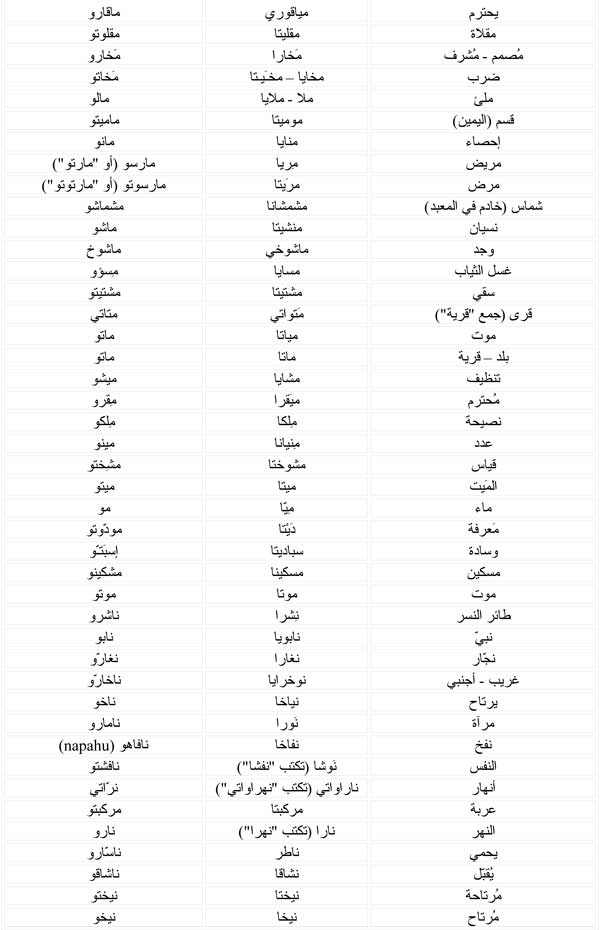 يحترم مياقوري ماقارو
مقلاة مقليتا مقلوتو
مُصمم - مُشرف مَخارا مَخارو
ضرب مخايا – مخـَيـتا مَخاتو
ملئ ملا - ملايا مالو
قسم (اليمين) موميتا ماميتو
إحصاء منايا مانو
مريض مريا مارسو (أو "مارتو")
مرض مرَيتا مارسوتو (أو "مارتوتو")
شماس (خادم في المعبد) مشمشانا مشماشو
نسيان منشيتا ماشو
وجد ماشوخي ماشوخ
غسل الثياب مسايا مِسوؤ
سقي مشتيتا مشتيتو
قرى (جمع "قرية") مَتواتي متاتي
موت مياتا ماتو
بلد – قرية ماتا ماتو
تنظيف مشايا ميشو
مُحترم ميَقرا مِقرو
نصيحة مِلكا مِلكو
عدد مِنيانا مينو
قياس مشوختا مشِختو
المَيت ميتا ميتو
ماء مِيّا مو
مَعرفة دَيْتا مودّوتو
وسادة سباديتا إسبَتـّو
مسكين مسكينا مشكينو
موت موتا موتو
طائر النسر نِشرا ناشرو
نبيّ نابويا نابو
نجّار نغارا نغارّو
غريب - أجنبي نوخرايا ناخارّو
يرتاح نياخا ناخو
مرآة نَورا نامارو
نفخ نفاخا نافاهو (napahu)
النفس نَوشا (تكتب "نفشا") نافشتو
أنهار ناراواتي (تكتب "نهراواتي") نرّاتي
عربة مركبتا مركبتو
النهر نارا (تكتب "نهرا") نارو
يحمي ناطر ناسّارو
يُقبّل نشاقا ناشاقو
مُرتاحة نيختا نيختو
مُرتاح نيخا نيخو